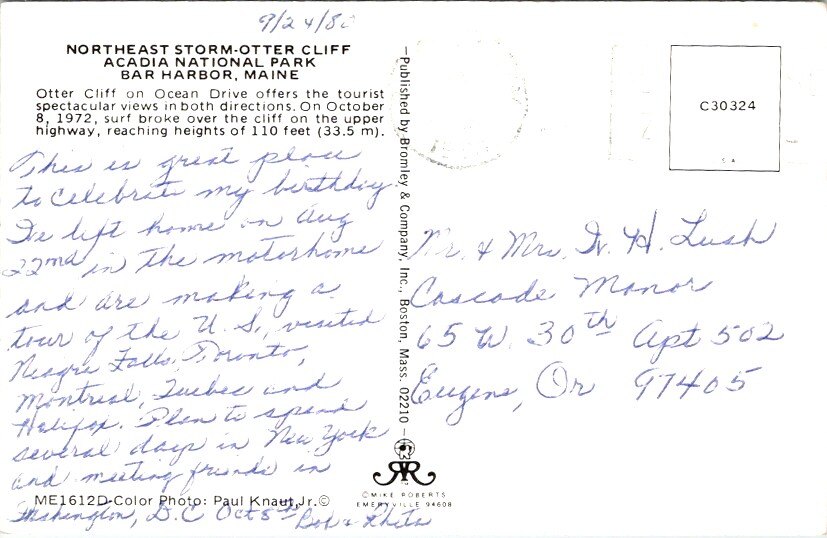 9/24/80
NORTHEAST STORM-OTTER CLIFF
ACADIA NATIONAL PARK
BAR HARBOR, MAINE
Otter Cliff on Ocean Drive offers the tourist
spectacular views in both directions. On October
8, 1972, surf broke over the cliff on the upper
highway, reaching heights of 110 feet (33.5 m).
This is great place
to celebrate my birthday
We left home on Aug
22nd in the motorhome
and are making a
tour of the U.S., visited
Niagra Falls, Toronto,
Montreal, Quebec and
Halifax. Plan to spend
several days in New York
and meeting friends in
Washington, D.C Oct 5th Bob & Rheta
ME1612D-Color Photo: Paul Knaut, Jr.©
—Published by Bromley & Company, Inc., Boston, Mass. 02210—
C30324
Mr. & Mrs. W. H. Lush
Cascade Manor
65 W. 30th Apt 502
Eugene, Or 97405
©MIKE ROBERTS
EMERYVILLE 94608